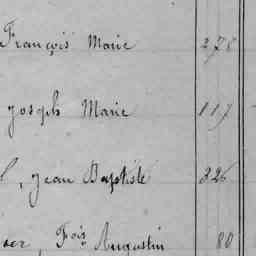 François Marie 278
Joseph Marie 117
, Jean Baptiste 226
, Fois Augustin 80